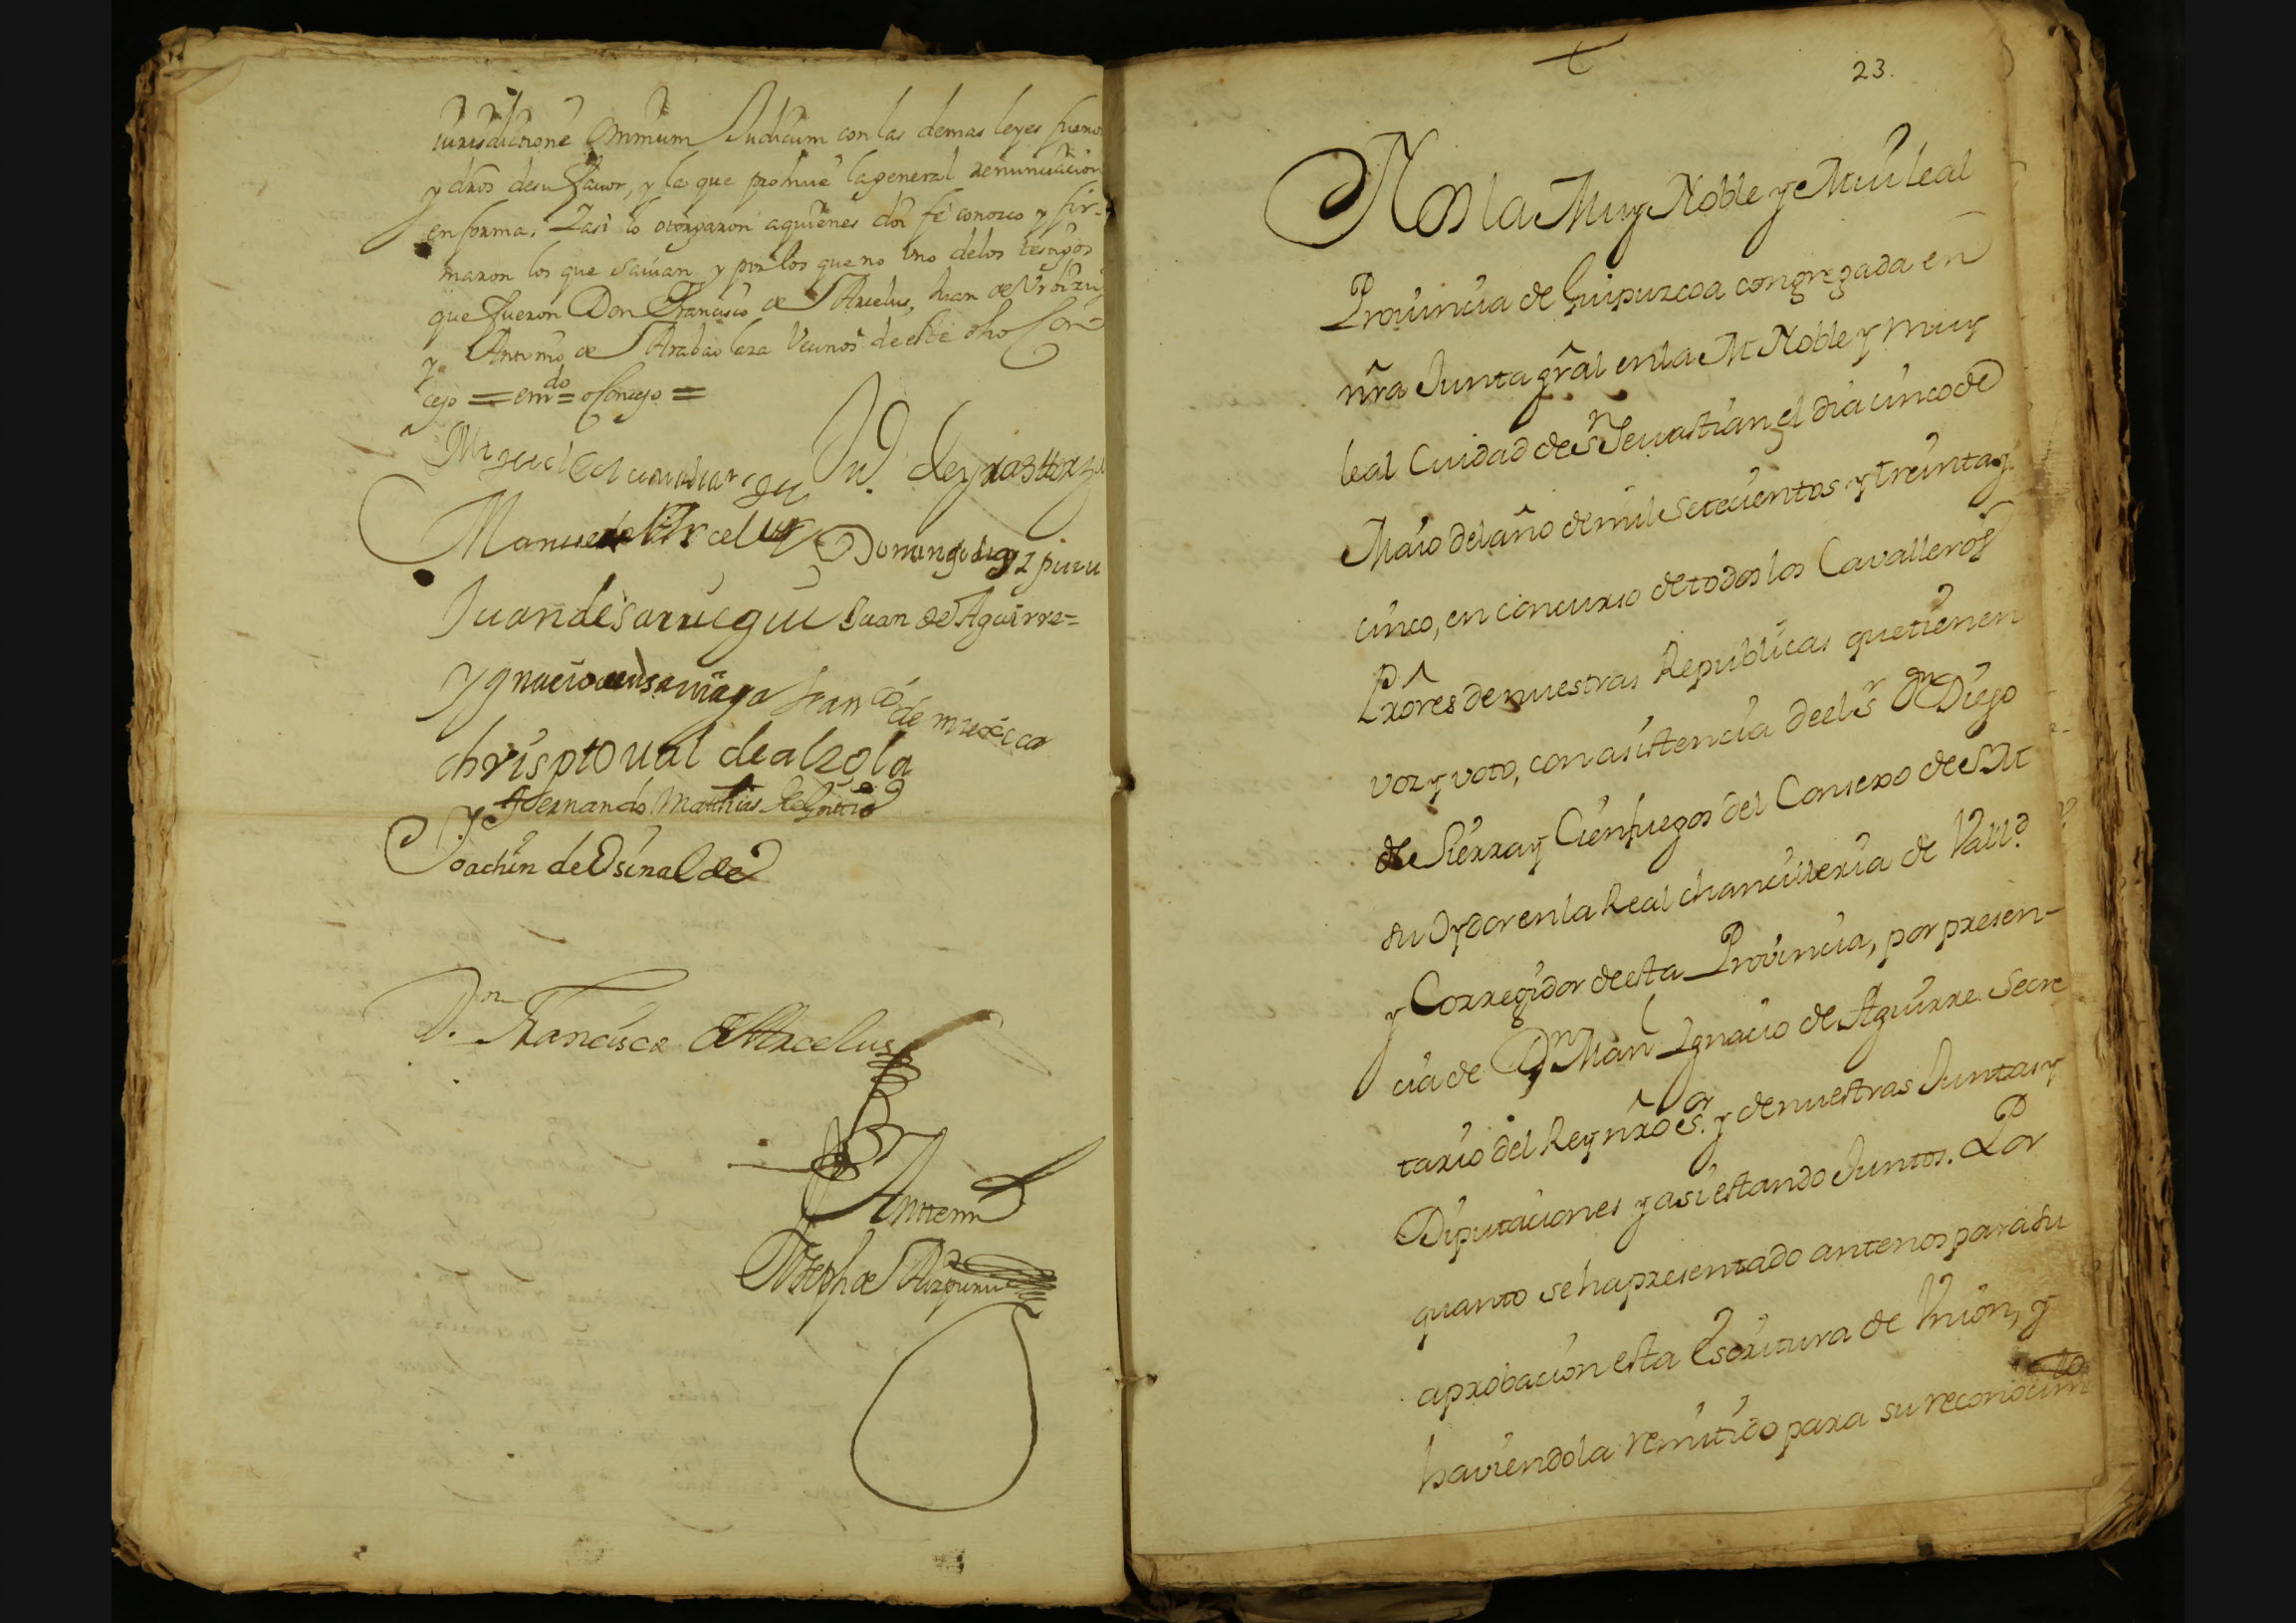 iurisdictione Omnium Iudicum con las demas leyes fueros
y dros desu favor, y la que prohive la general renunciacion
en forma. Y asi lo otorgaron aquienes doi feé conozco y fir-
maron los que savian y por los que no uno delos testigos
que fueron Don Francisco de Arcelus, Juan de Urbizu
y Antonio de Arabaolaza Vecinos de este dho Con
cejo = emdo = o Concejo =
Manuel de Arcelus Domingo de
Juan de Sarruegui Juan de Aguirre=
Ygnacio de franco de muxica
chrisptoual de alzola
Hernando Matthias
Joachin de Osinalde
Dn Francisco de Arcelus
Antemi
Joseph de Aizpuru
23.
Nos la Muy Noble y Mui leal
Provincia de Guipuzcoa congregada en
nra Junta gral en la M Noble y muy
leal Ciudad de Sn Sevastian el dia cinco de
Maio del año de mil setecientos y treinta y
cinco, en concurso de todos los Cavalleros
Prores de nuestras Republicas que tienen
voz y voto, con asistencia de el Sr Dn Diego
de Sierra y Cienfuegos del Consexo de S M
su Oydor en la Real chancilleria de Valld
y Corregidor de esta Provincia, por presen-
cia de Dn Manl Ignacio de Aguirre Secre
tario del Rey nro Sor. y de nuestras Juntas y
Diputaciones y asi estando Juntos. Por
quanto se ha presentado ante nos para su
aprobacion esta Escritura de Union, y
haviendola remitido para su reconocimto